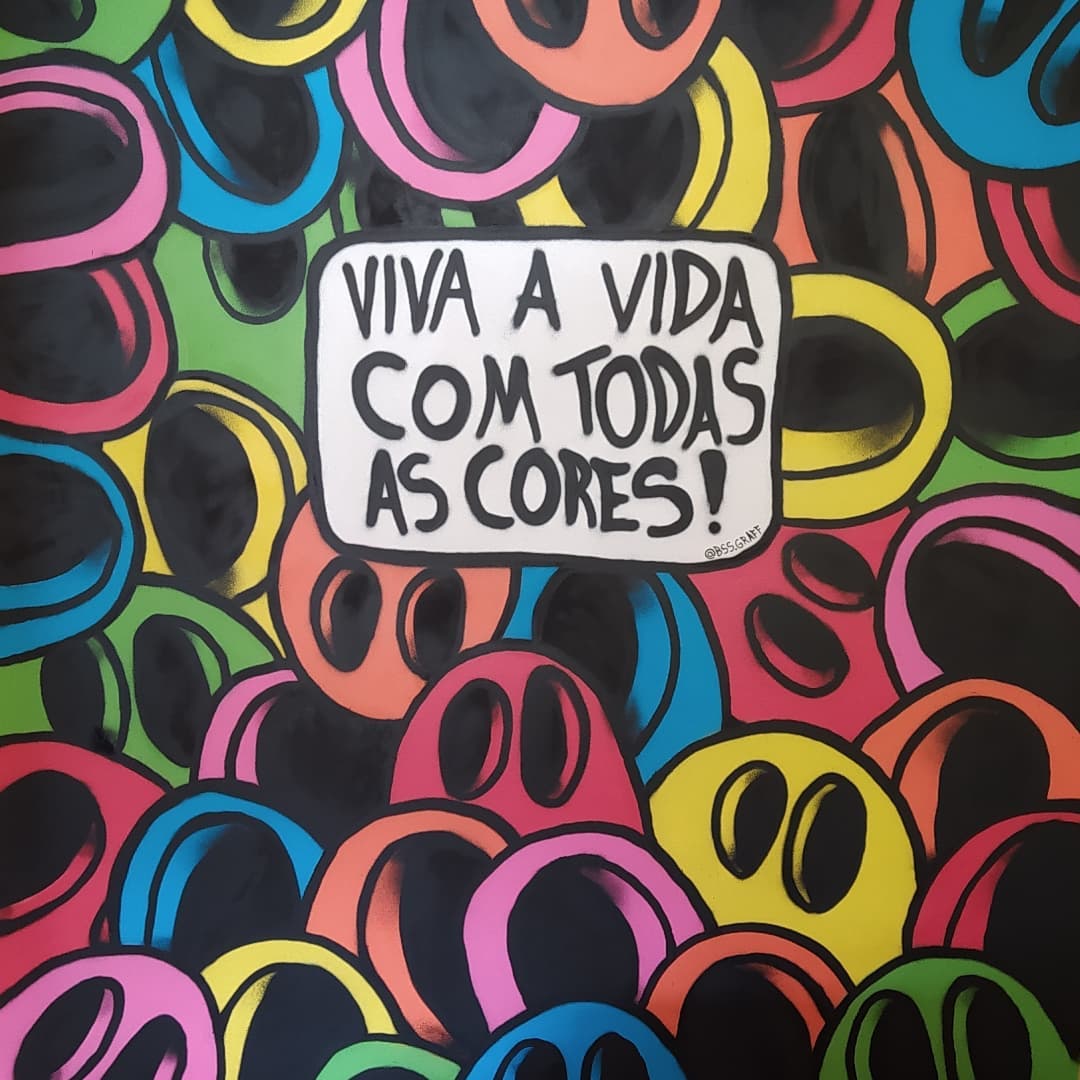 VIVA A VIDA
COM TODAS
AS CORES!
@BSS.GRAFF